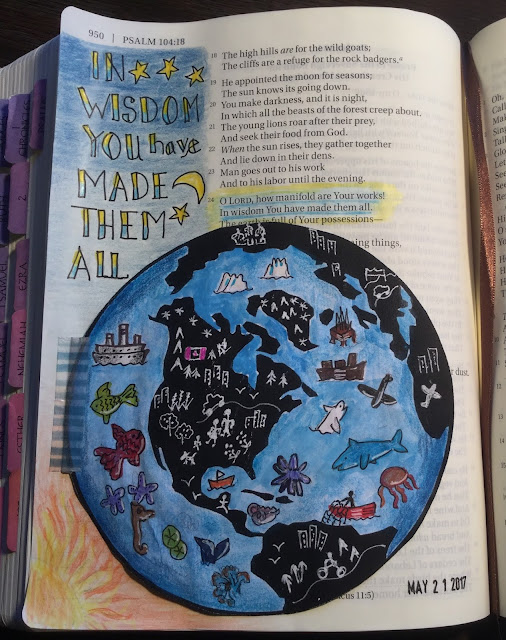 950 | PSALM 104:18
IN
WISDOM
YOU have
MADE
THEM
ALL
18 The high hills are for the wild goats;
The cliffs are a refuge for the rock badgers.a
19 He appointed the moon for seasons;
The sun knows its going down.
20 You make darkness, and it is night,
In which all the beasts of the forest creep about.
21 The young lions roar after their prey,
And seek their food from God.
22 When the sun rises, they gather together
And lie down in their dens.
23 Man goes out to his work
And to his labor until the evening.
24 O LORD, how manifold are Your works!
In wisdom You have made them all.
The earth is full of Your possessions—
things,
dust.
MAY 21 2017
11:5)
2
EZRA
NEHEMIAH
ESTHER
SAMUEL
Oh,